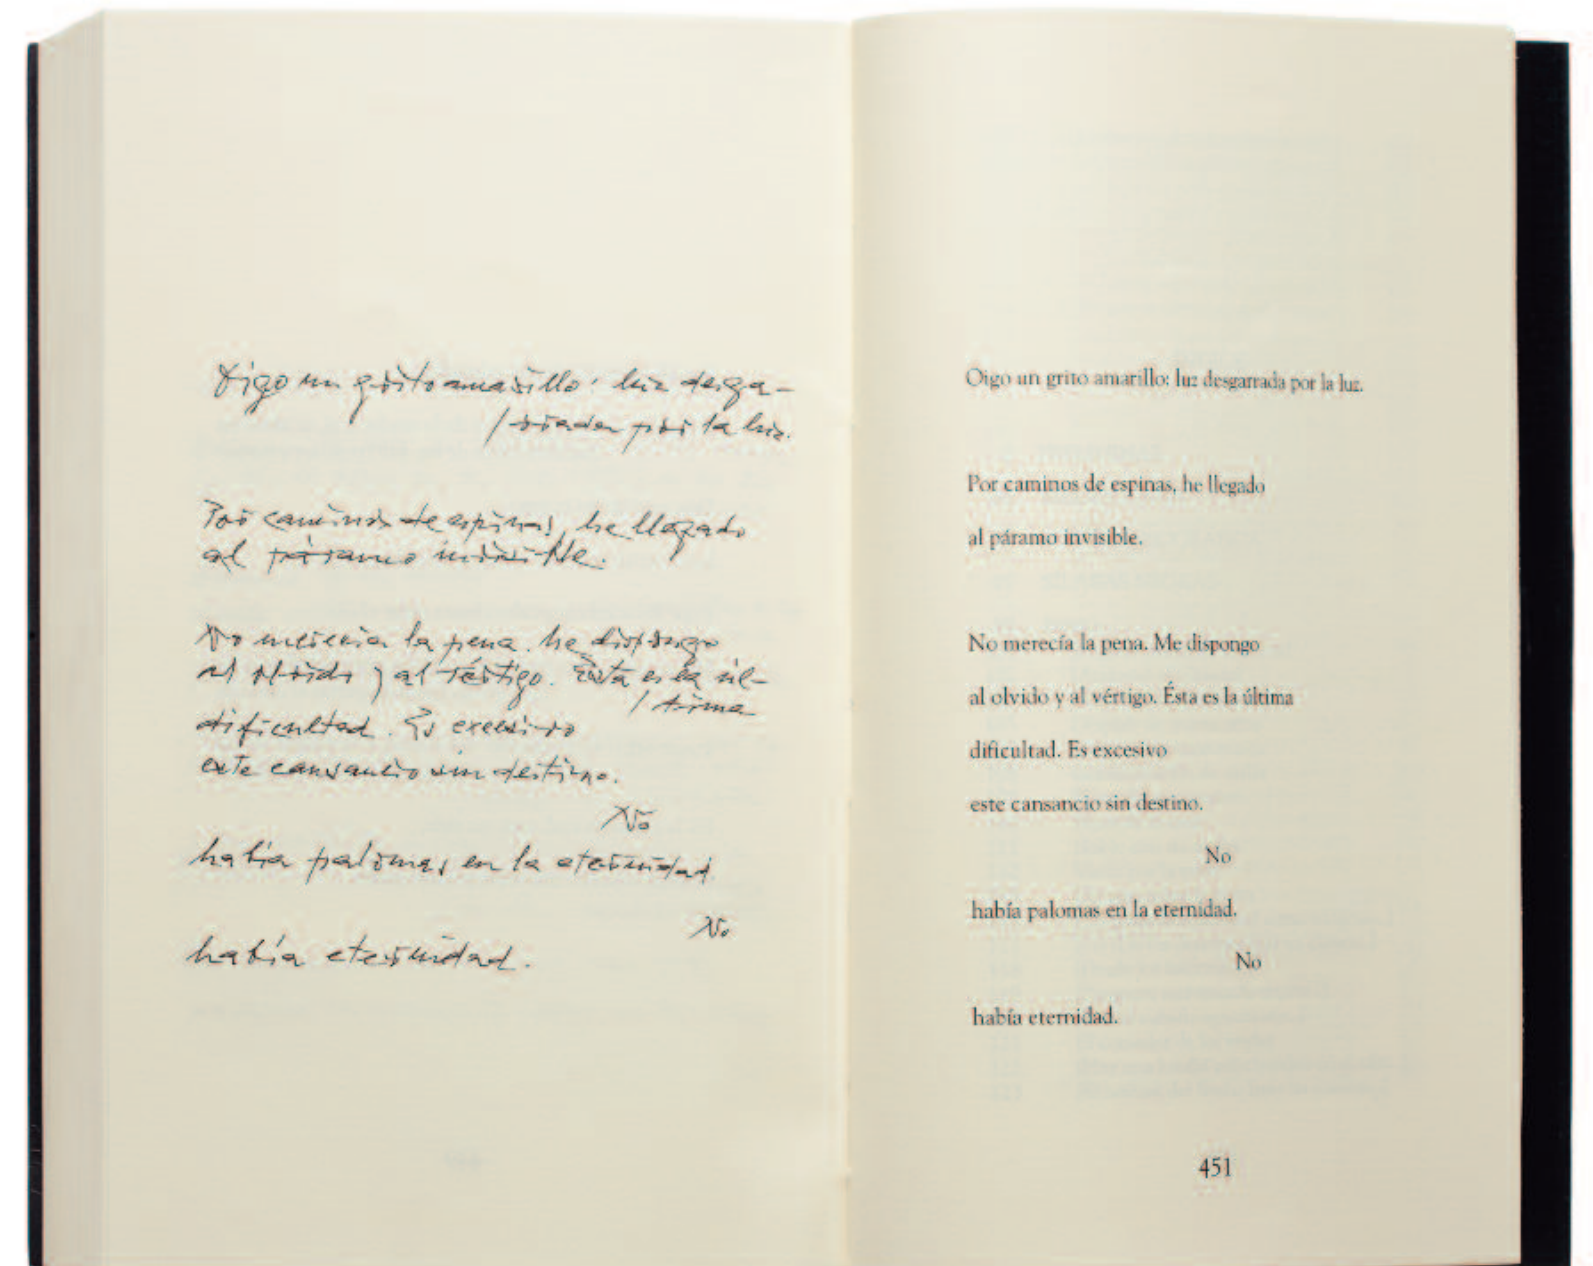 Oigo un grito amarillo: luz desga-
/rrada por la luz.
Por caminos de espinas, he llegado
al páramo invisible.
No merecía la pena. Me dispongo
al olvido y al vértigo. Ésta es la úl-
/tima
dificultad. Es excesivo
este cansancio sin destino.
No
había palomas en la eternidad
No
había eternidad.
Oigo un grito amarillo: luz desgarrada por la luz.
Por caminos de espinas, he llegado
al páramo invisible.
No merecía la pena. Me dispongo
al olvido y al vértigo. Ésta es la última
dificultad. Es excesivo
este cansancio sin destino.
No
había palomas en la eternidad.
No
había eternidad.
451